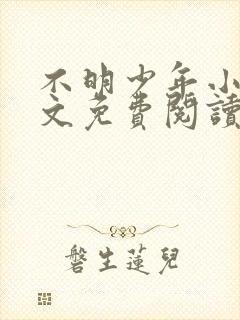 不明少年小
文免費閱讀
磐生蓮兒